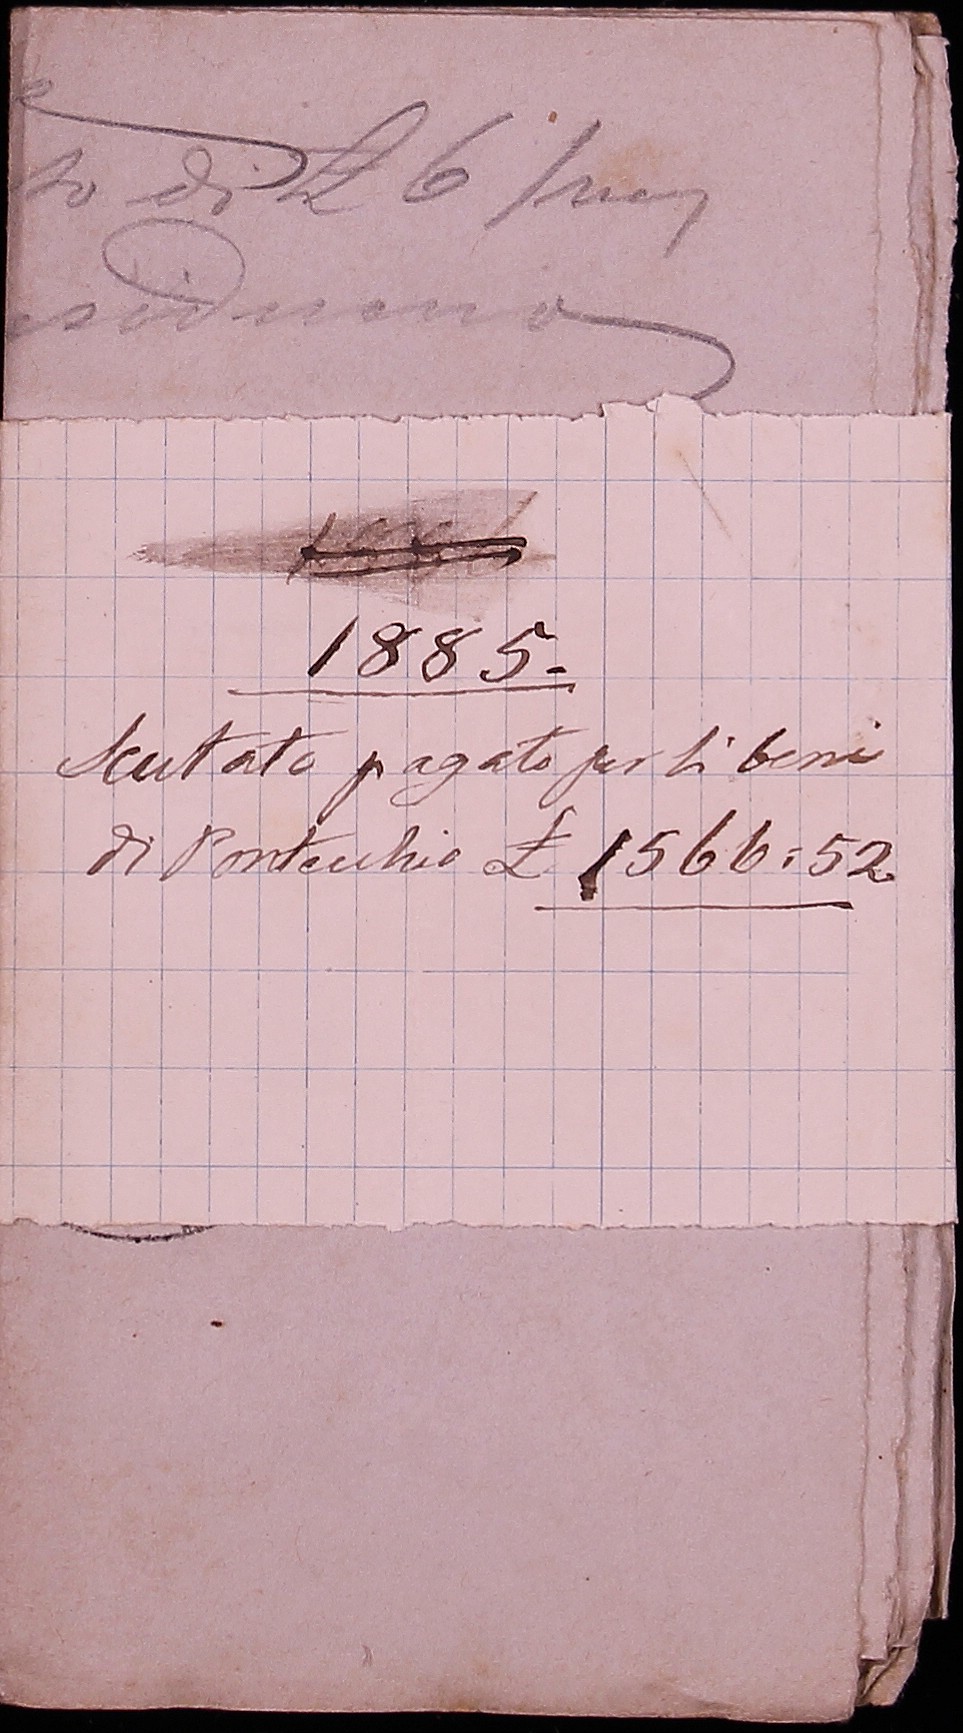 di £ 6
1885.
Scutato pagato per li beni
di Pontecchio £ 1566:52